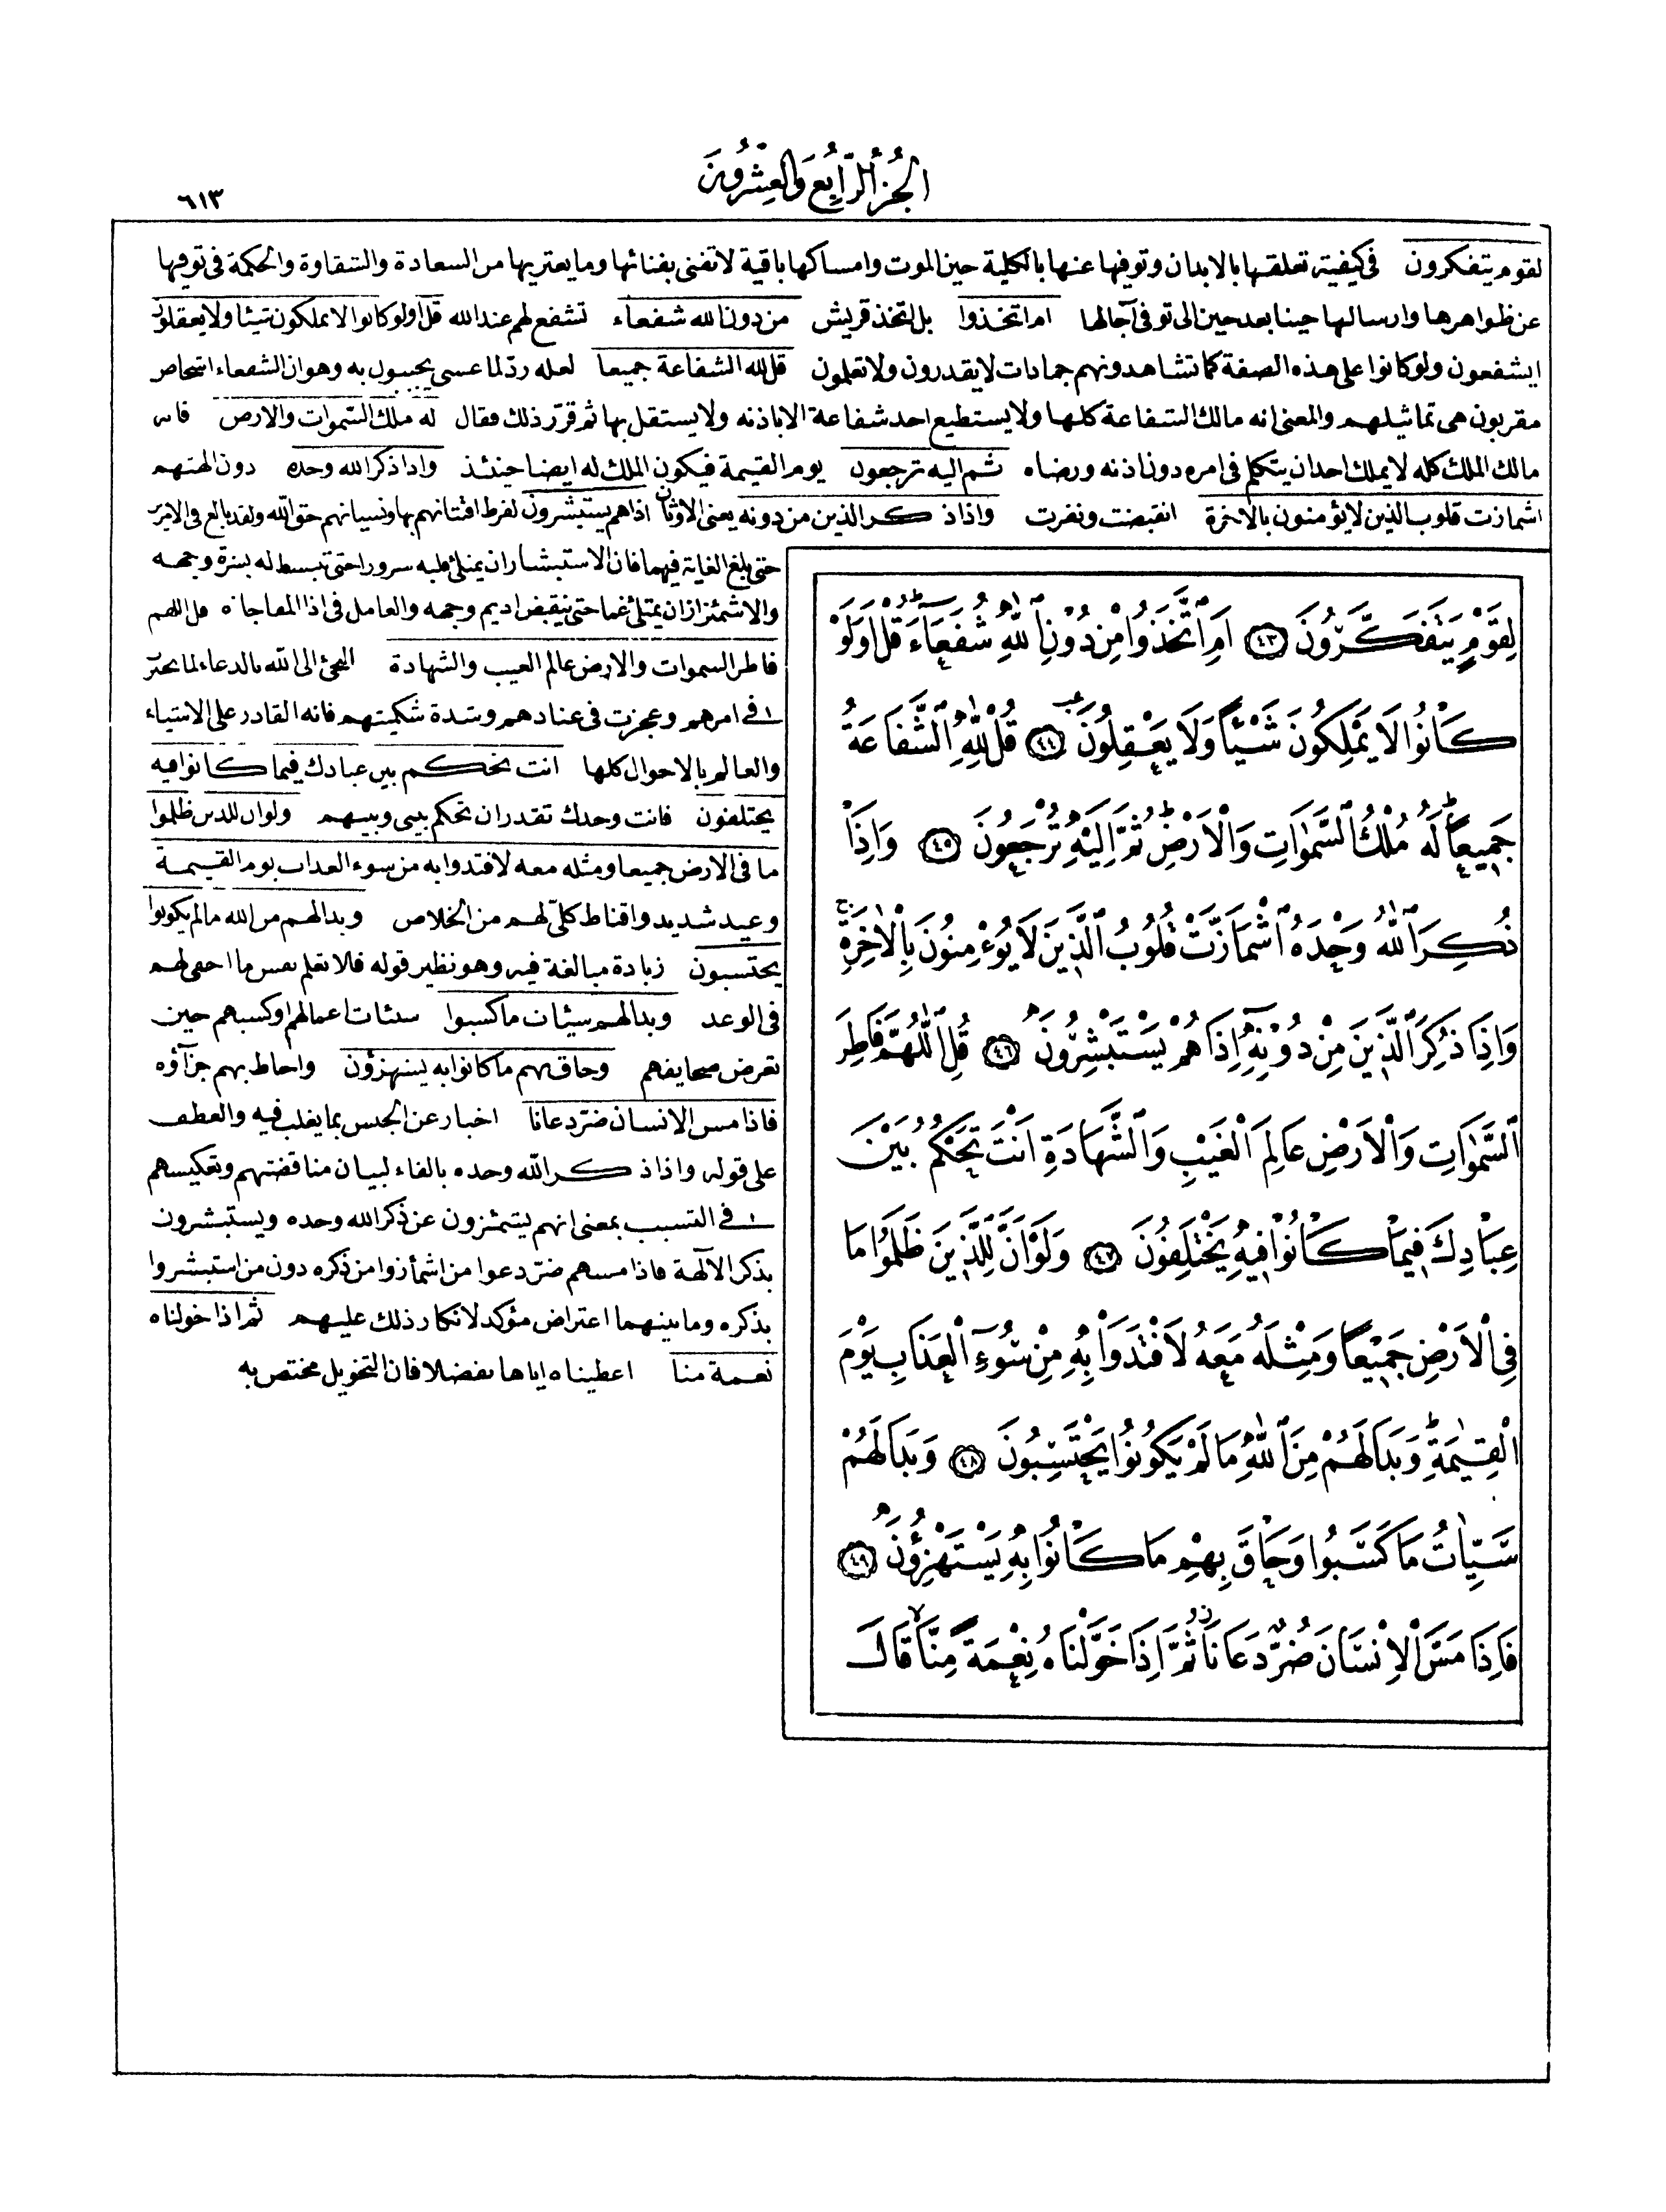 الجزء الرابع والعشرون
٦١٣
لقوم يتفكرون في كيفية تعلقها بالابدان وتوفيها عنها بالكلية حين الموت وامساكها باقية لا تفنى بفنائها وما يعتريها من السعادة والشقاوة والحكمة في توفيها
عن ظواهرها وارسالها حينا بعد حين الى توفى آجالها ام اتخذوا بل اتخذ قريش من دون الله شفعاء تشفع لهم عند الله قل اولو كانوا لا يملكون شيئا ولا يعقلون
ايشفعون ولو كانوا على هذه الصفة كما تشاهدونهم جمادات لا يقدرون ولا تعلمون قل لله الشفاعة جميعا لعله رد لما عسى يجيبون به وهو ان الشفعاء اشخاص
مقربون هى تماثيلهم والمعنى انه مالك الشفاعة كلها ولا يستطيع احد شفاعة الا باذنه ولا يستقل بها ثم قرر ذلك فقال له ملك السموات والارض فانه
مالك الملك كله لا يملك احد ان يتكلم في امره دون اذنه ورضاه ثم اليه ترجعون يوم القيمة فيكون الملك له ايضا حينئذ واذا ذكر الله وحده دون الهتهم
اشمازت قلوب الذين لا يؤمنون بالاخرة انقبضت ونفرت واذا ذكر الذين من دونه يعنى الاوثان اذا هم يستبشرون لفرط افتتانهم بها ونسيانهم حق الله ولقد بالغ في الامرين
حتى بلغ الغاية فيهما فان الاستبشار ان يمتلئ قلبه سرورا حتى تبسط له بشرة وجهه
والاشمئزاز ان يمتلئ غما حتى ينقبض اديم وجهه والعامل في اذا المفاجاة قل اللهم
فاطر السموات والارض عالم الغيب والشهادة التجئ الى الله بالدعاء لما تحيرت
في امرهم وعجزت في عنادهم وشدة شكيمتهم فانه القادر على الاشياء
والعالم بالاحوال كلها انت تحكم بين عبادك فيما كانوا فيه
يختلفون فانت وحدك تقدر ان تحكم بينى وبينهم ولو ان للذين ظلموا
ما في الارض جميعا ومثله معه لافتدوا به من سوء العذاب يوم القيمة
وعيد شديد واقناط كلى لهم من الخلاص وبدا لهم من الله ما لم يكونوا
يحتسبون زيادة مبالغة فيه وهو نظير قوله فلا تعلم نفس ما اخفى لهم
في الوعد وبدا لهم سيئات ما كسبوا سيئات اعمالهم او كسبهم حين
تعرض صحايفهم وحاق بهم ما كانوا به يستهزؤن واحاط بهم جزآؤه
فاذا مس الانسان ضر دعانا اخبار عن الجنس بما يغلب فيه والعطف
على قوله واذا ذكر الله وحده بالفاء لبيان مناقضتهم وتعكيسهم
في التسبب بمعنى انهم يشمئزون عن ذكر الله وحده ويستبشرون
بذكر الآلهة فاذا مسهم ضر دعوا من اشمأزوا من ذكره دون من استبشروا
بذكره وما بينهما اعتراض مؤكد لانكار ذلك عليهم ثم اذا خولناه
نعمة منا اعطيناه اياها تفضلا فان التخويل مختص به
لِقَوْمٍ يَتَفَكَّرُونَ ﴿٤٣﴾ اَمِ اتَّخَذُوا مِنْ دُونِ اللّٰهِ شُفَعَاءَ قُلْ اَوَلَوْ
كَانُوا لَا يَمْلِكُونَ شَيْئًا وَلَا يَعْقِلُونَ ﴿٤٤﴾ قُلْ لِلّٰهِ الشَّفَاعَةُ
جَمِيعًا لَهُ مُلْكُ السَّمٰوَاتِ وَالْاَرْضِ ثُمَّ اِلَيْهِ تُرْجَعُونَ ﴿٤٥﴾ وَاِذَا
ذُكِرَ اللّٰهُ وَحْدَهُ اشْمَاَزَّتْ قُلُوبُ الَّذِينَ لَا يُؤْمِنُونَ بِالْاٰخِرَةِ
وَاِذَا ذُكِرَ الَّذِينَ مِنْ دُونِهِ اِذَا هُمْ يَسْتَبْشِرُونَ ﴿٤٦﴾ قُلِ اللّٰهُمَّ فَاطِرَ
السَّمٰوَاتِ وَالْاَرْضِ عَالِمَ الْغَيْبِ وَالشَّهَادَةِ اَنْتَ تَحْكُمُ بَيْنَ
عِبَادِكَ فِيمَا كَانُوا فِيهِ يَخْتَلِفُونَ ﴿٤٧﴾ وَلَوْ اَنَّ لِلَّذِينَ ظَلَمُوا مَا
فِي الْاَرْضِ جَمِيعًا وَمِثْلَهُ مَعَهُ لَافْتَدَوْا بِهِ مِنْ سُوءِ الْعَذَابِ يَوْمَ
الْقِيٰمَةِ وَبَدَا لَهُمْ مِنَ اللّٰهِ مَا لَمْ يَكُونُوا يَحْتَسِبُونَ ﴿٤٨﴾ وَبَدَا لَهُمْ
سَيِّـَٔاتُ مَا كَسَبُوا وَحَاقَ بِهِمْ مَا كَانُوا بِهِ يَسْتَهْزِؤُنَ ﴿٤٩﴾
فَاِذَا مَسَّ الْاِنْسَانَ ضُرٌّ دَعَانَا ثُمَّ اِذَا خَوَّلْنَاهُ نِعْمَةً مِنَّا قَالَ